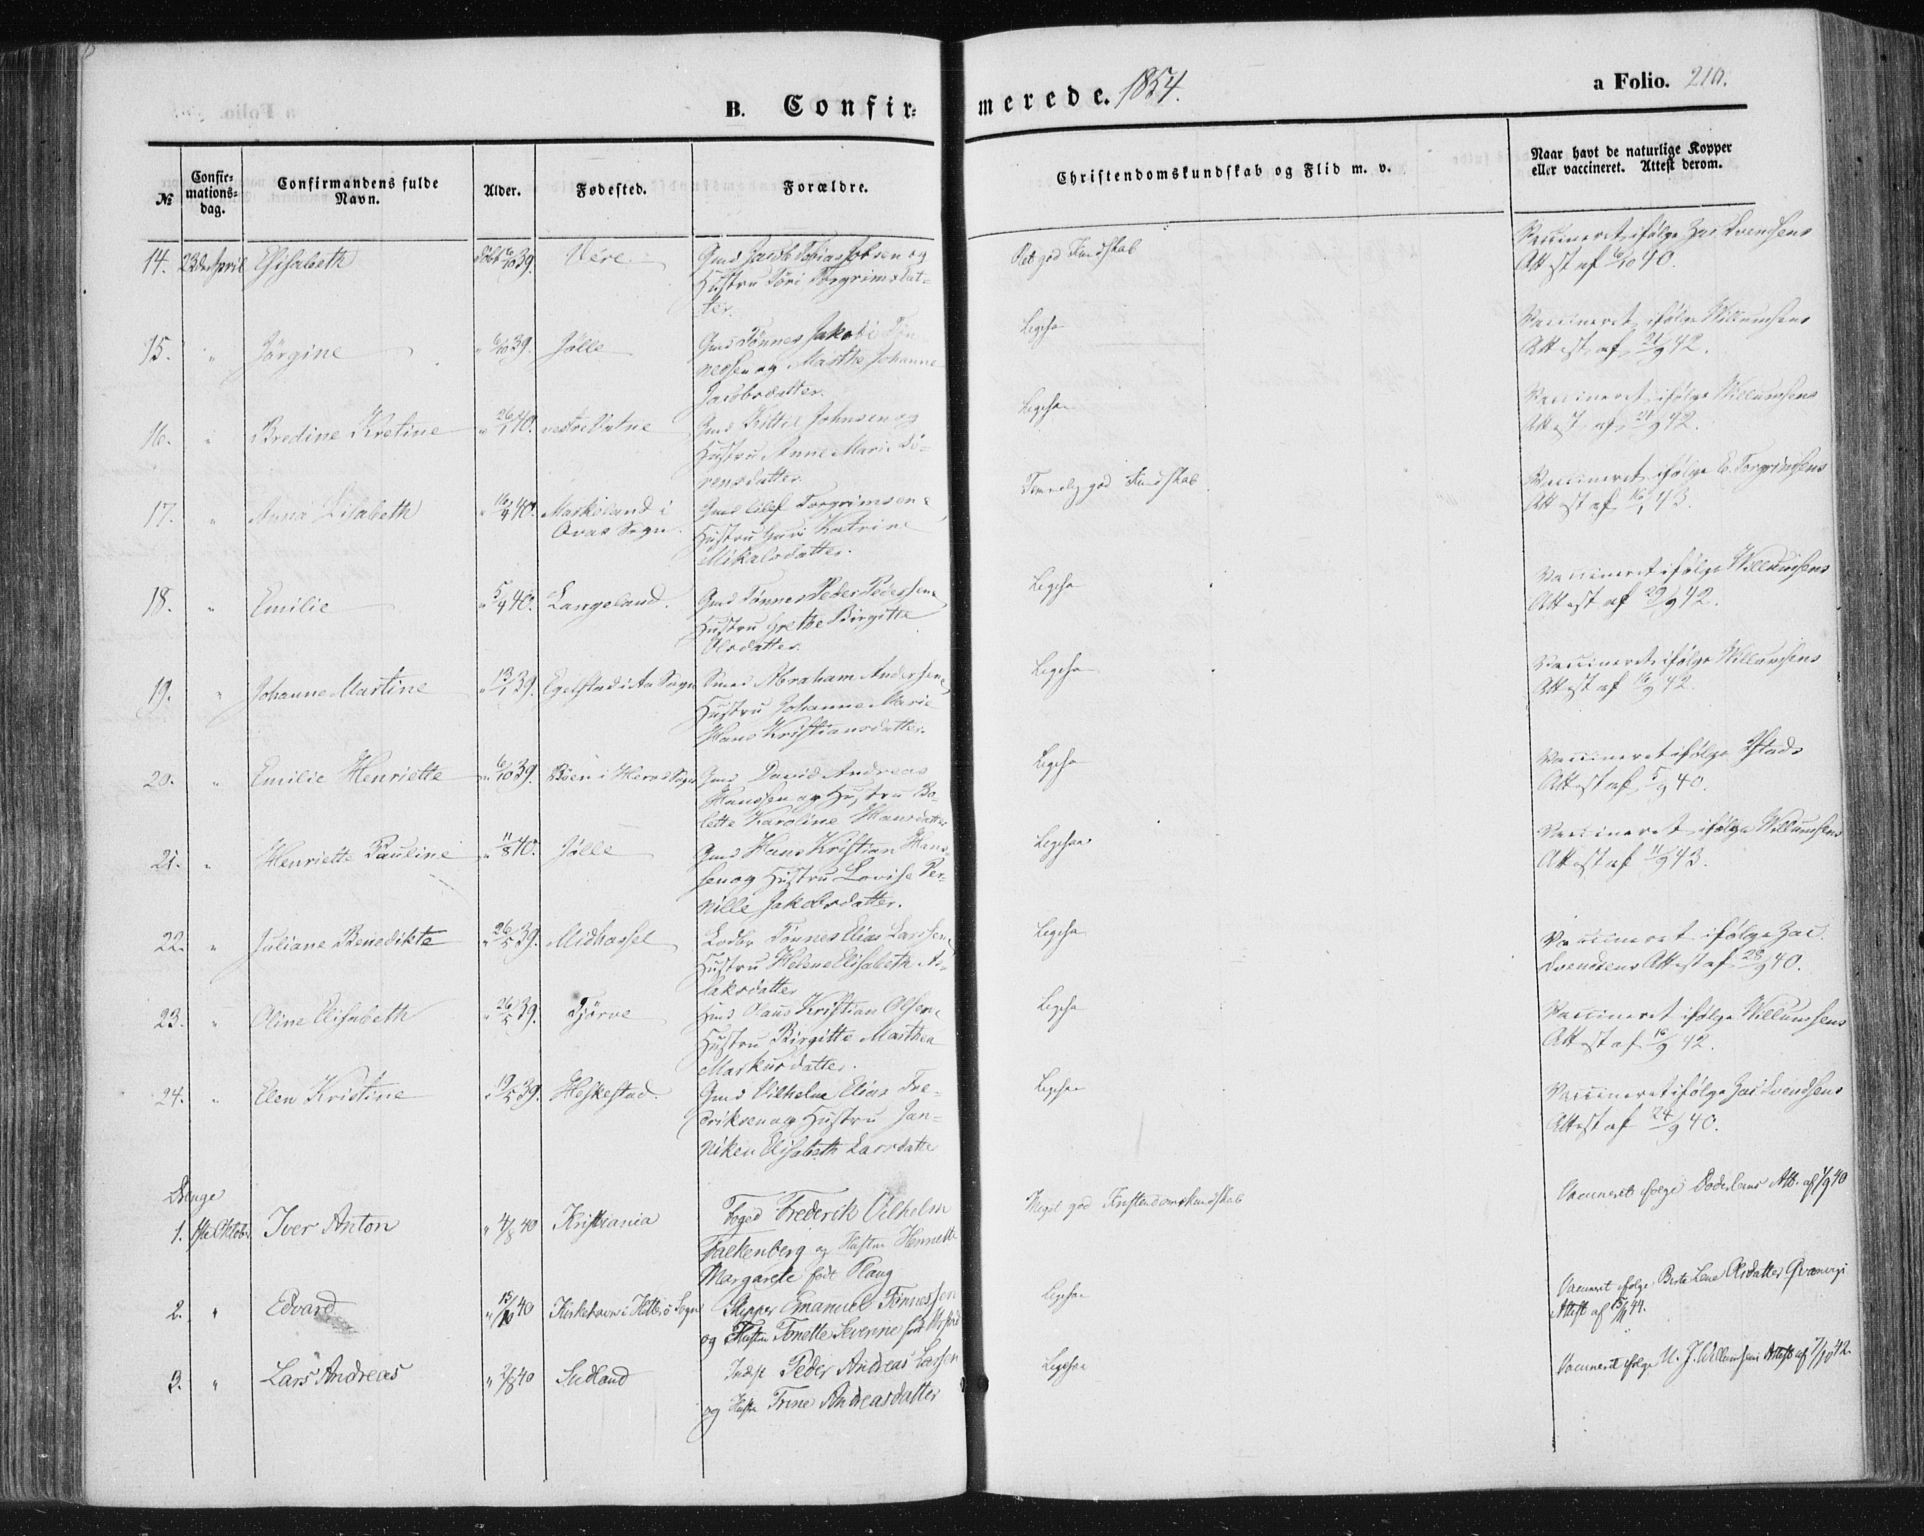 B. Confir-
merede. 1854.
a Folio. 210.
№
Confir-
mations-
dag.
Confirmandens fulde
Navn.
Alder.
Fødested.
Forældre.
Christendomskundskab og Flid m. v.
Naar havt de naturlige Kopper
eller vaccineret. Attest derom.
14. 23de April Elisabeth 6/10 39. Vere Gmd Jacob Tobias Jobsen og
Hustru Tori Torgrimsdat-
ter.
Ret god Kundskab
Vaccineret ifølge Zac. Svendsens
Attest af 6/10 40.
15. " Jörgine " 6/10 39. Jølle Gmd Tönnes Jakob Tön-
nessen og Marthe Johanne
Jacobsdatter.
Ligesaa
Vaccineret ifølge Willumsens
Attest af 21/9 42.
16. " Bredine Kretine " 26/1 40. vestre Vatne Gmd Kittil Johnsen og
Hustru Anne Marie Sö-
rensdatter
Ligesaa
Vaccineret ifølge Willumsens
Attest af 21/9 42.
17. " Anna Elisabeth " 16/4 40. Markoland i
Qvas Sogn.
Gmd Olef Torgrimsen &
Hustru Guri Katrine
Mikalsdatter.
Temmelig god Kundskab
Vaccineret ifølge E. Torgrimsens
Attest af 16/1 43.
18. " Emilie " 5/4 40. Langeland. Gmd Tönnes Peder Pedersen &
Hustru Grethe Birgitte
Olsdatter
Ligesaa
Vaccineret ifølge Willumsens
Attest af 29/9 42.
19. " Johanne Martine " 13/1 39. Egelstad i Aa Sogn Smed Abraham Andersen &
Hustru Johanne Marie
Hans Kristiansdatter.
Ligesaa
Vaccineret ifølge Willumsens
Attest af 16/9 42.
20. " Emilie Henriette " 6/10 39. Böen i Heras Sogn Gmd David Andreas
Hanssen og Hustru Bo-
lette Karoline Hansdatter
Ligesaa
Vaccineret ifølge Ystads
Attest af 5/9 40.
21. " Henriette Pauline " 11/8 40. Jølle Gmd Hans Kristian Hans-
sen og Hustru Lovise Per-
nille Jakobsdatter.
Ligesaa
Vaccineret ifølge Willumsens
Attest af 11/9 43.
22. " Juliane Benedikte " 26/5 39. Midhassel Lods Tönnes Elias Larssen &
Hustru Helene Elisabeth As-
laksdatter
Ligesaa
Vaccineret ifølge Zac.
Svendsens Attest af 28/9 40.
23. " Oline Elisabeth " 26/5 39. Tjörve Hmd Olaus Kristian Olsen &
Hustru Birgitte Marthea
Markusdatter.
Ligesaa
Vaccineret ifølge Willumsens
Attest af 16/9 42.
24. " Elen Kristine " 19/5 39. Heskestad. Gmd Vilhelm Elias Fre-
driksen og Hustru Jan-
niken Elisabeth Larsdatter
Ligesaa
Vaccineret ifølge Zac Svendsens
Attest af 24/9 40.
Drenge
1. 1ste Oktobr. Iver Anton " 4/8 40 Kristiania Foged Frederik Vilhelm
Falkenberg og Hustru Henriette
Margarete født Ploug
Meget god Kristendomskundskab
Vaccineret ifølge Döderleins Att. af 1/9 40
2. " Edvard " 15/10 40 Kirkehavn i Hitterö Sogn Skipper Emanuel Tönnessen
og Hustru Tonette Severine født
Ligesaa
Vaccineret ifølge Berte Lene Olsdatter Qvanvigs
Attest af 15/11 44.
3. " Lars Andreas " 2/8 40 Sudland Inds Peder Andreas Larsen
og Hustru Trine Andreasdatter
Ligesaa
Vaccineret ifølge U. J. Willumsens Attest af 7/10 42.